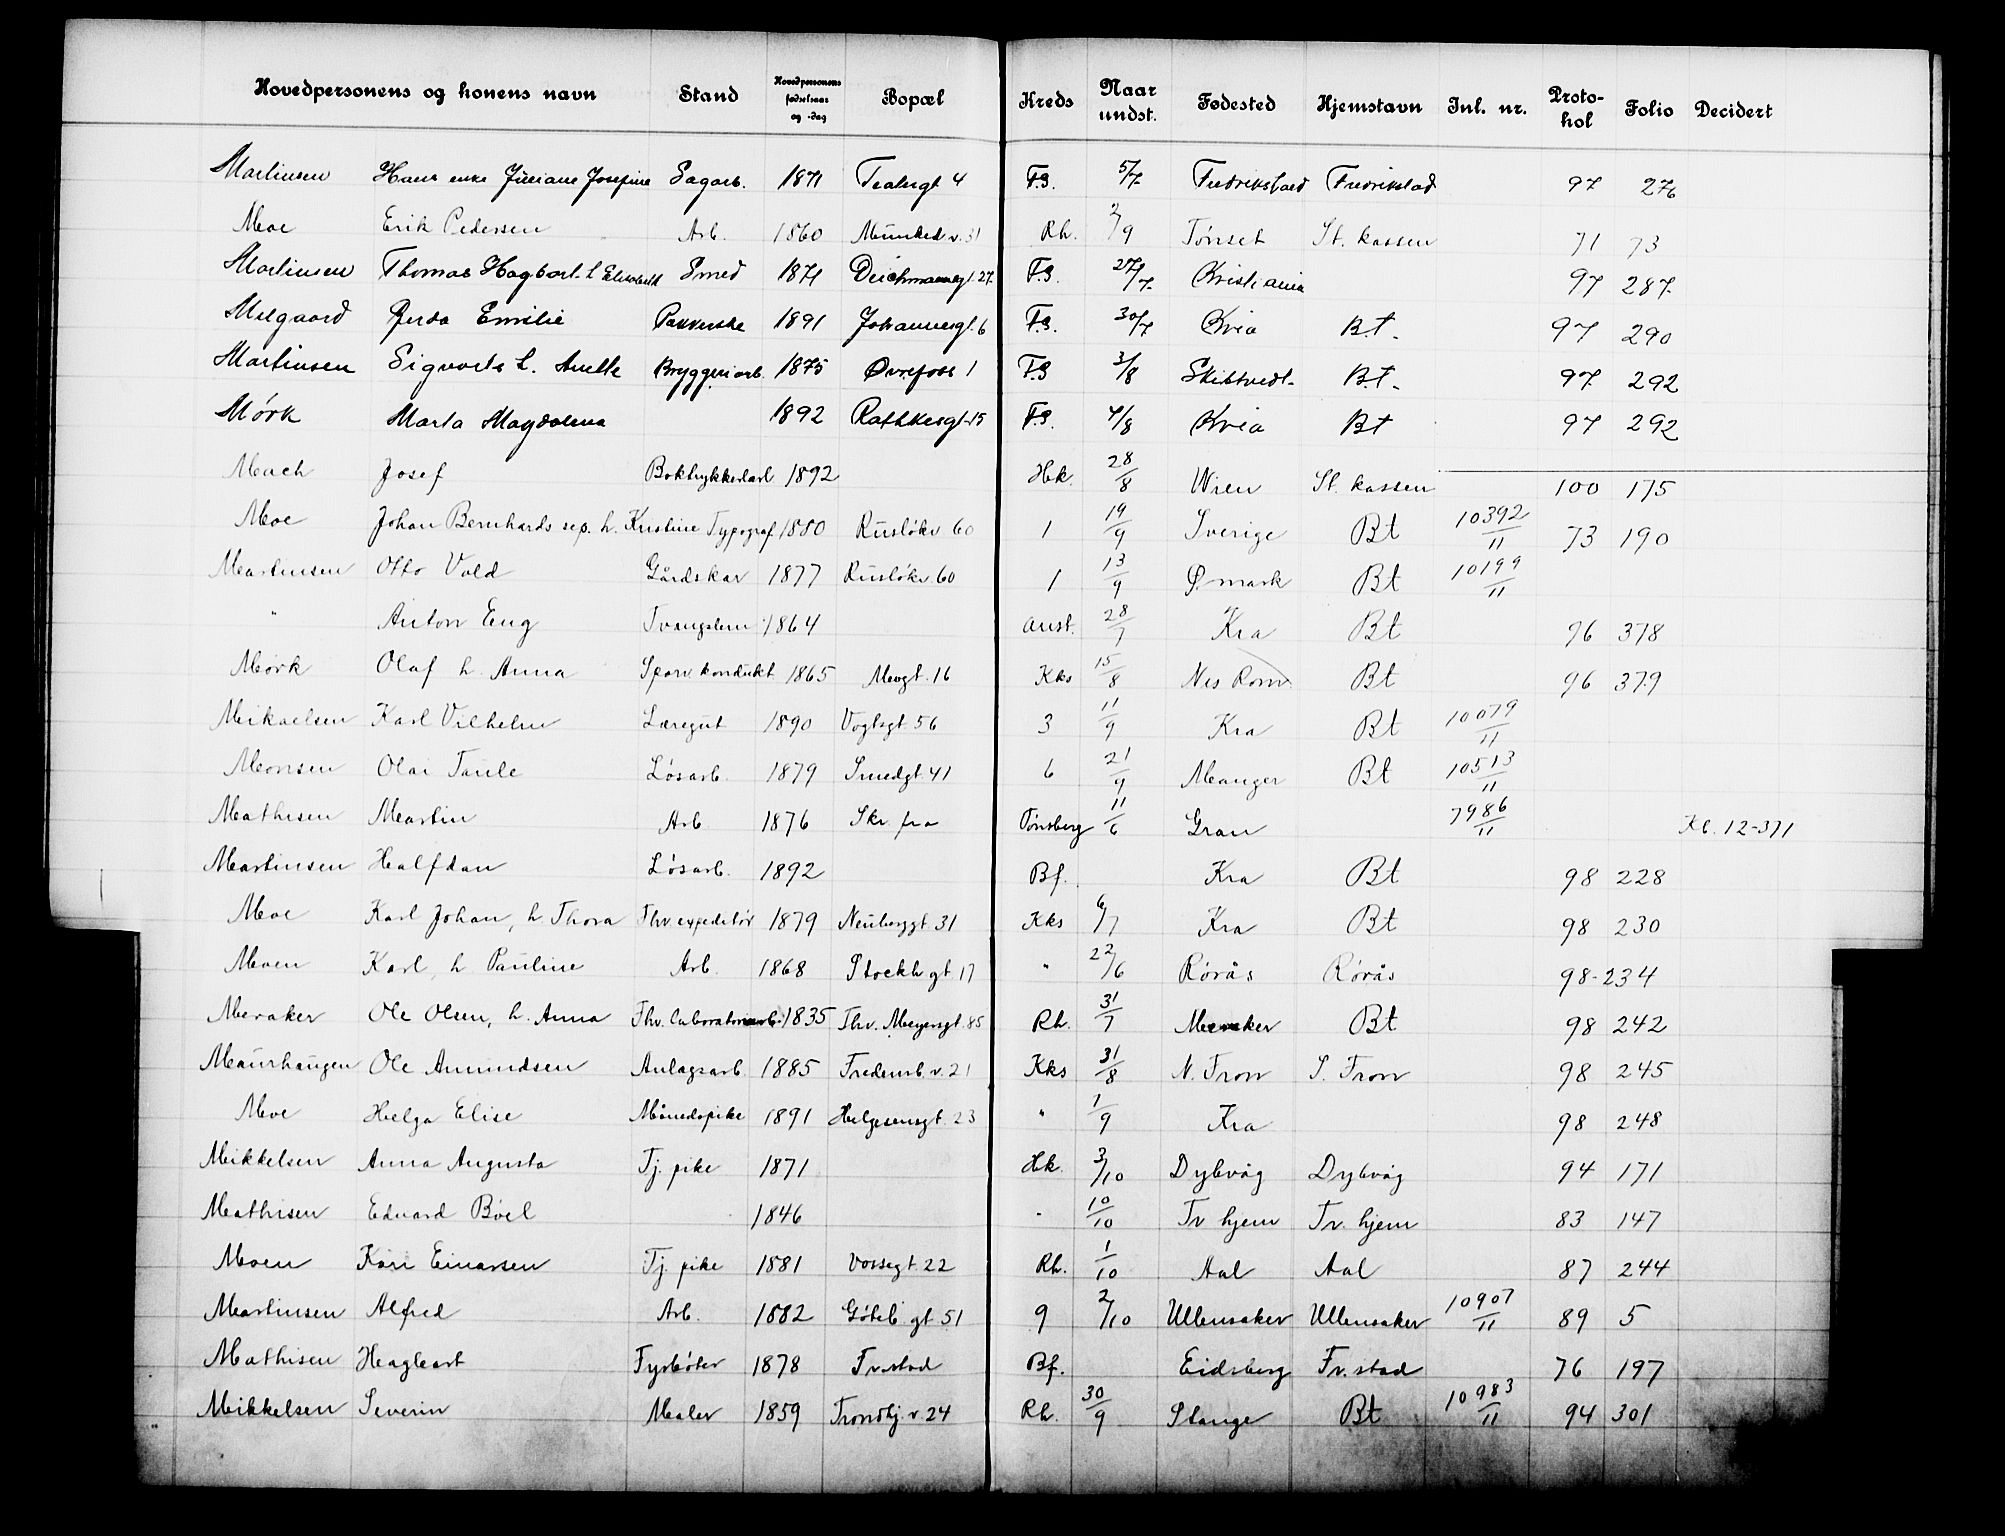 Hovedpersonens og konens navn Stand Hovedpersonens fødselsaar og -dag Bopæl Kreds Naar undst. Fødested Hjemstavn Jnl. nr. Protokol Folio Decidert
Martinsen Hans enke Juliane Josefine Sagarb. 1871 4 F.S. 5/7 Fredrikstad Fredrikstad 97 276
Moe Erik Pedersen Arb. 1860 Munked.v. 31 Rh. 2/9 Tønset St. kassen 71 73
Martinsen Thomas Hagbart h Elisabeth Smed 1871 Deichmannsgt. 27 F.S. 27/7 Kristiania 97 287
Melgaard Gerda Emilie Pakkerske 1891 Johannesgt. 6 F.S. 30/7 Kria Bt. 97 290
Martinsen Sigvarts h. Anette Bryggeriarb. 1875 Øvrefoss 1 F.S 3/8 Skibtvedt Bt. 97 292
Mørk Marta Magdalena 1892 Rathkesgt. 15 F.S. 4/8 Kria Bt 97 292
Mach Josef Boktrykkerlærl 1892 Hk. 28/8 Wien St. kassen 100 175
Moe Johan Bernhards sep. h. Kristine Typograf 1880 Rusløkv 60 1 19/9 Sverige Bt 10392/11 73 190
Martinsen Otto Vold Gårdskar 1877 Rusløkv. 60 1 13/9 Ø.mark Bt 10199/11
" Anton Eng Tvangslem 1864 Anst. 28/7 Kra Bt 96 378
Mørk Olaf h. Anna Sporv. kondukt 1865 Mogt. 16 Kks 15/8 Nes Rom. Bt 96 379
Mikaelsen Karl Vilhelm Læregut 1890 Vogtsgt. 56 3 11/9 Kra Bt 10079/11
Monsen Olai Taule Løsarb. 1879 Smedgt. 41 6 21/9 Manger Bt 10513/11
Mathisen Martin Arb 1876 Skr. fra Tønsberg 11/6 Gran 7986/11 Kl. 12-371
Martinsen Halfdan Løsarb. 1892 Bf. Kra Bt 98 228
Moe Karl Johan, h. Thora Fhv. expeditør 1879 Neuberggt. 31 Kks 6/7 Kra Bt 98 230
Moen Karl, h Pauline Arb. 1868 Stockh gt. 17 " 22/6 Rørås Rørås 98-234
Meraker Ole Olsen, h. Anna Fhv. laboratoriearb. 1835 Thv. Meyersgt. 85 Rh. 31/7 Meraker Bt 98 242
Maurhaugen Ole Amundsen Anlagsarb. 1885 Fredensb.v. 21 Kks 31/8 N. Fron S. Fron 98 245
Moe Helga Elise Månedspike 1891 Helgesensgt. 23 " 1/9 Kra 98 248
Mikkelsen Anna Augusta Tj. pike 1871 Hk. 3/10 Dybvåg Dybvåg 94 171
Mathisen Edvard Bøel 1846 " 10/10 Tr hjem Tr. hjem 83 147
Moen Kari Einarsen Tj. pike 1881 Vossegt 22 Rh. 1/10 Aal Aal 87 244
Martinsen Alfred Arb. 1882 Gøteb. gt. 51 9 2/10 Ullensaker Ullensaker 10907/11 89 5
Mathisen Hagbart Fyrbøter 1878 Fr.stad Bf. Eidsberg Fr.stad 76 197
Mikkelsen Severin Maler 1859 Trondhj.v. 24 Rh. 30/9 Stange Bt 10983/11 94 301